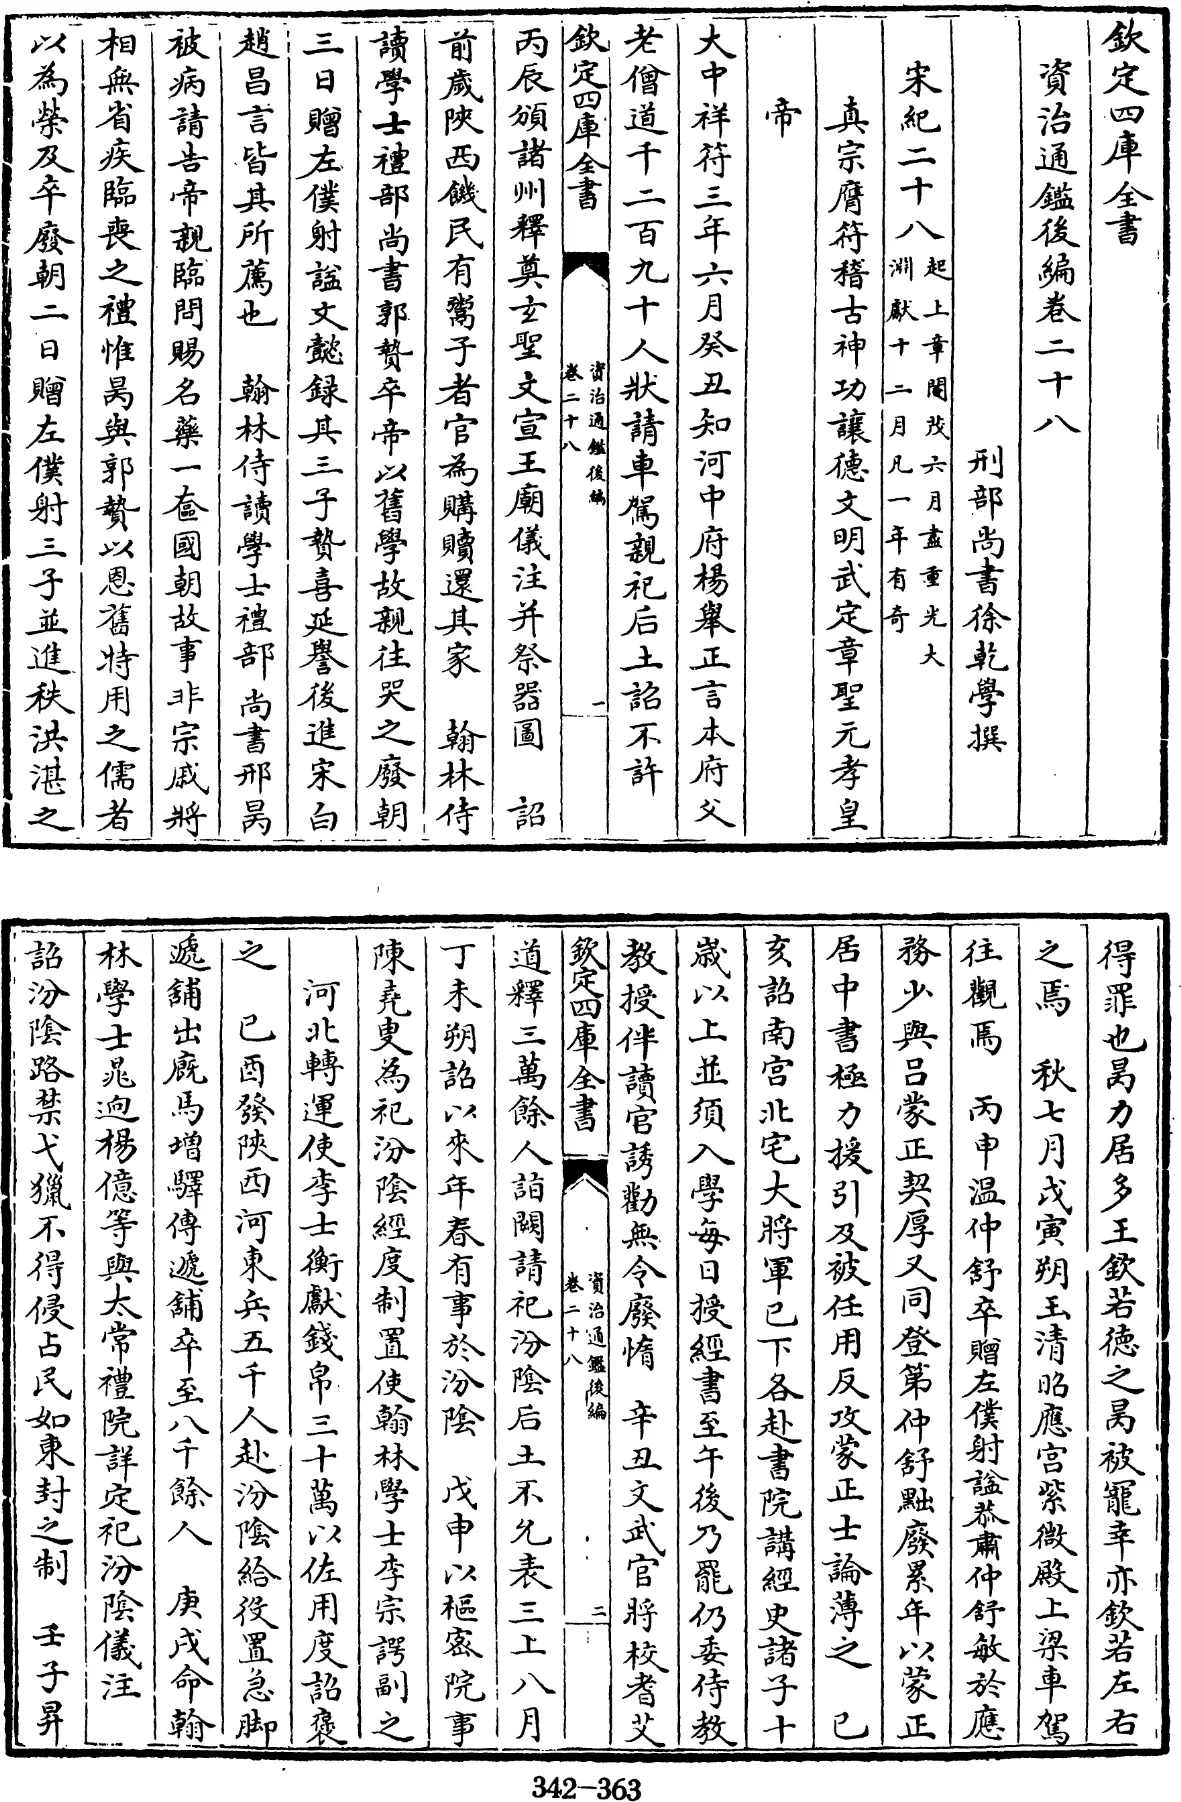 欽定四庫全書
資治通鑑後編卷二十八
刑部尚書徐乾學撰
宋紀二十八起上章閹茂六月盡重光大
淵獻十二月凡一年有奇
真宗膺符稽古神功讓德文明武定章聖元孝皇
帝
大中祥符三年六月癸丑知河中府楊舉正言本府父
老僧道千二百九十人狀請車駕親祀后土詔不許
欽定四庫全書
資治通鑑後編
卷二十八
一
丙辰頒諸州釋奠玄聖文宣王廟儀注并祭器圖 詔
前歲陜西饑民有鬻子者官為購贖還其家 翰林侍
讀學士禮部尚書郭贄卒帝以舊學故親往哭之廢朝
三日贈左僕射諡文懿錄其三子贄喜延譽後進宋白
趙昌言皆其所薦也 翰林侍讀學士禮部尚書邢昺
被病請告帝親臨問賜名藥一奩國朝故事非宗戚將
相無省疾臨喪之禮惟昺與郭贄以恩舊特用之儒者
以為榮及卒廢朝二日贈左僕射三子並進秩洪湛之
得罪也昺力居多王欽若德之昺被寵幸亦欽若左右
之焉 秋七月戊寅朔玉清昭應宮紫微殿上梁車駕
往觀焉 丙申温仲舒卒贈左僕射諡恭肅仲舒敏於應
務少與呂蒙正契厚又同登第仲舒黜廢累年以蒙正
居中書極力援引及被任用反攻蒙正士論薄之 己
亥詔南宮北宅大將軍已下各赴書院講經史諸子十
歲以上並須入學每日授經書至午後乃罷仍委侍教
教授伴讀官誘勸無令廢惰 辛丑文武官將校耆艾
欽定四庫全書
資治通鑑後編
卷二十八
二
道釋三萬餘人詣闕請祀汾陰后土不允表三上八月
丁未朔詔以來年春有事於汾陰 戊申以樞密院事
陳堯叟為祀汾陰經度制置使翰林學士李宗諤副之
河北轉運使李士衡獻錢帛三十萬以佐用度詔褒
之 己酉發陜西河東兵五千人赴汾陰給役置急脚
遞舖出廐馬增驛傳遞舖卒至八千餘人 庚戌命翰
林學士晁迥楊億等與太常禮院詳定祀汾陰儀注
詔汾陰路禁弋獵不得侵占民如東封之制 壬子昇
342-363